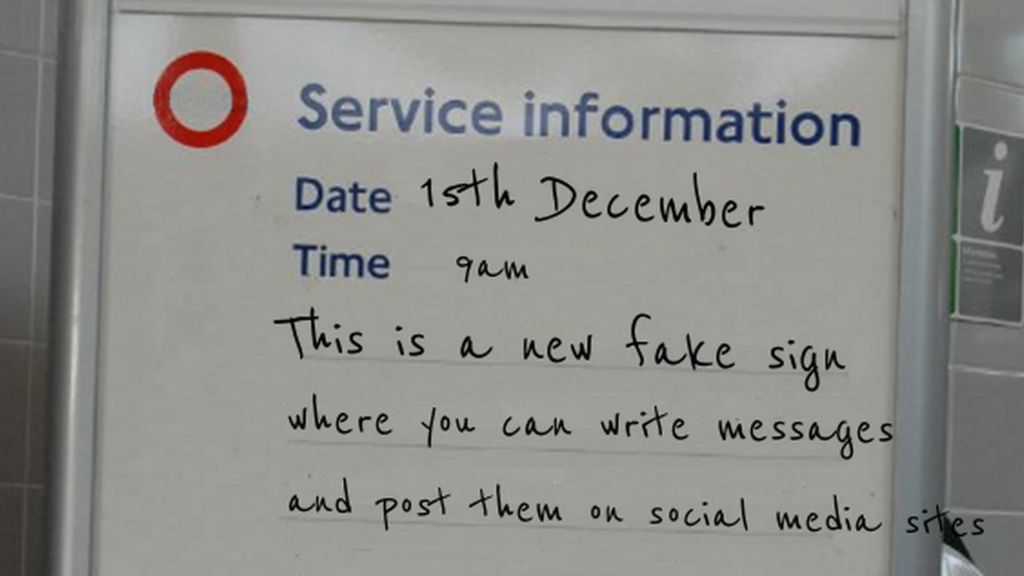 Service information
Date 15th December
Time 9am
This is a new fake sign
where you can write messages
and post them on social media sites
i